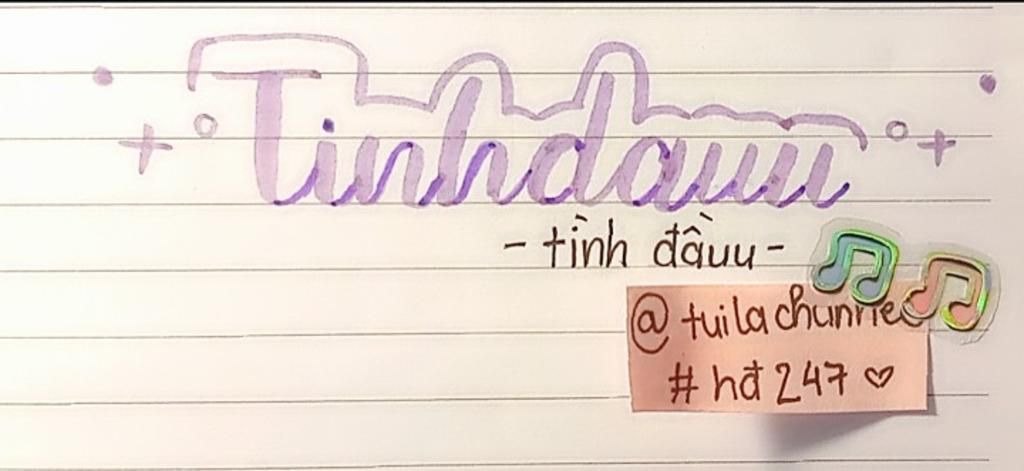 Tinhdauuu
- tình đầuu -
@tuilachunne
#hđ247♡